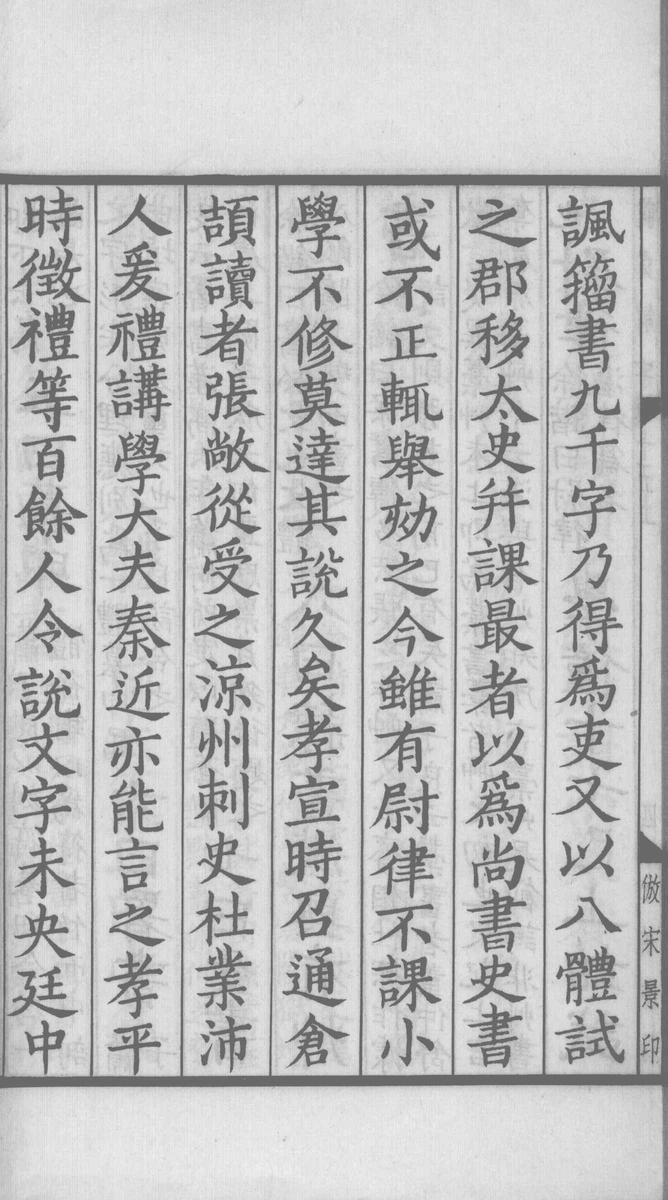 諷籀書九千字乃得爲吏又以八體試
之郡移太史并課最者以爲尚書史書
或不正輒舉劾之今雖有尉律不課小
學不修莫達其說久矣孝宣時召通倉
頡讀者張敞從受之涼州刺史杜業沛
人爰禮講學大夫秦近亦能言之孝平
時徵禮等百餘人令說文字未央廷中
倣宋景印